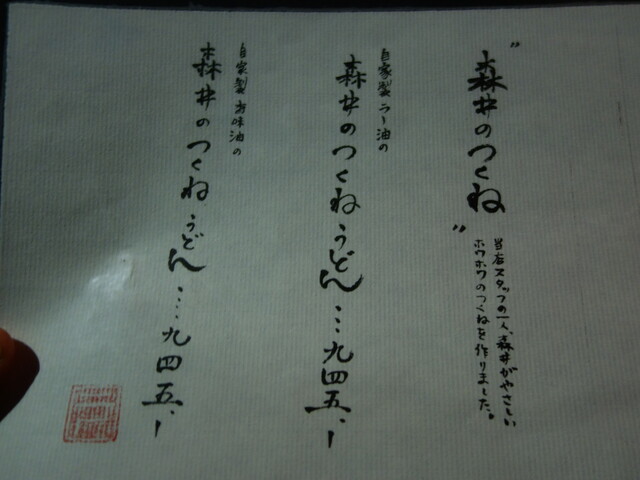 "森井のつくね"
当店スタッフの一人、森井がやさしい
ホワホワのつくねを作りました。
自家製ラー油の
森井のつくねうどん…九四五、ー
自家製香味油の
森井のつくねうどん…九四五、ー